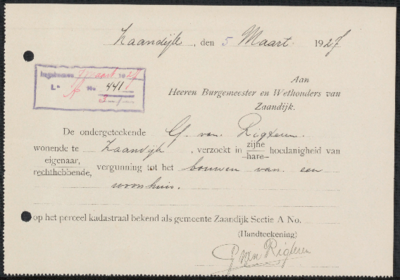 Zaandijk, den 5 Maart 1927
Aan
Heeren Burgemeester en Wethouders van
Zaandijk.
Ingekomen
No 4411
De ondergeteekende G. van Rigteren
wonende te Zaandijk, verzoekt in zijne
hare
hoedanigheid van
eigenaar,
rechthebbende, vergunning tot het bouwen van een
woonhuis.
op het perceel kadastraal bekend als gemeente Zaandijk Sectie A No.
(Handteekening)
G van Rigteren